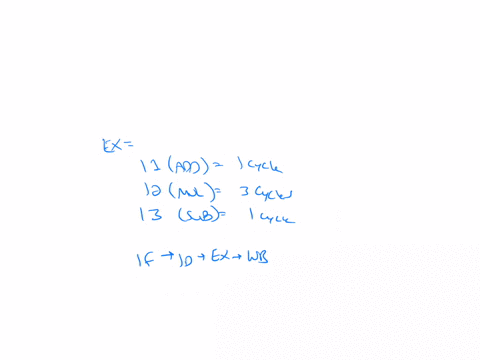 EX=
I1 (ADD) = 1 cycle
I2 (Mul) = 3 cycles
I3 (SUB) = 1 cycle
IF → ID → EX → WB